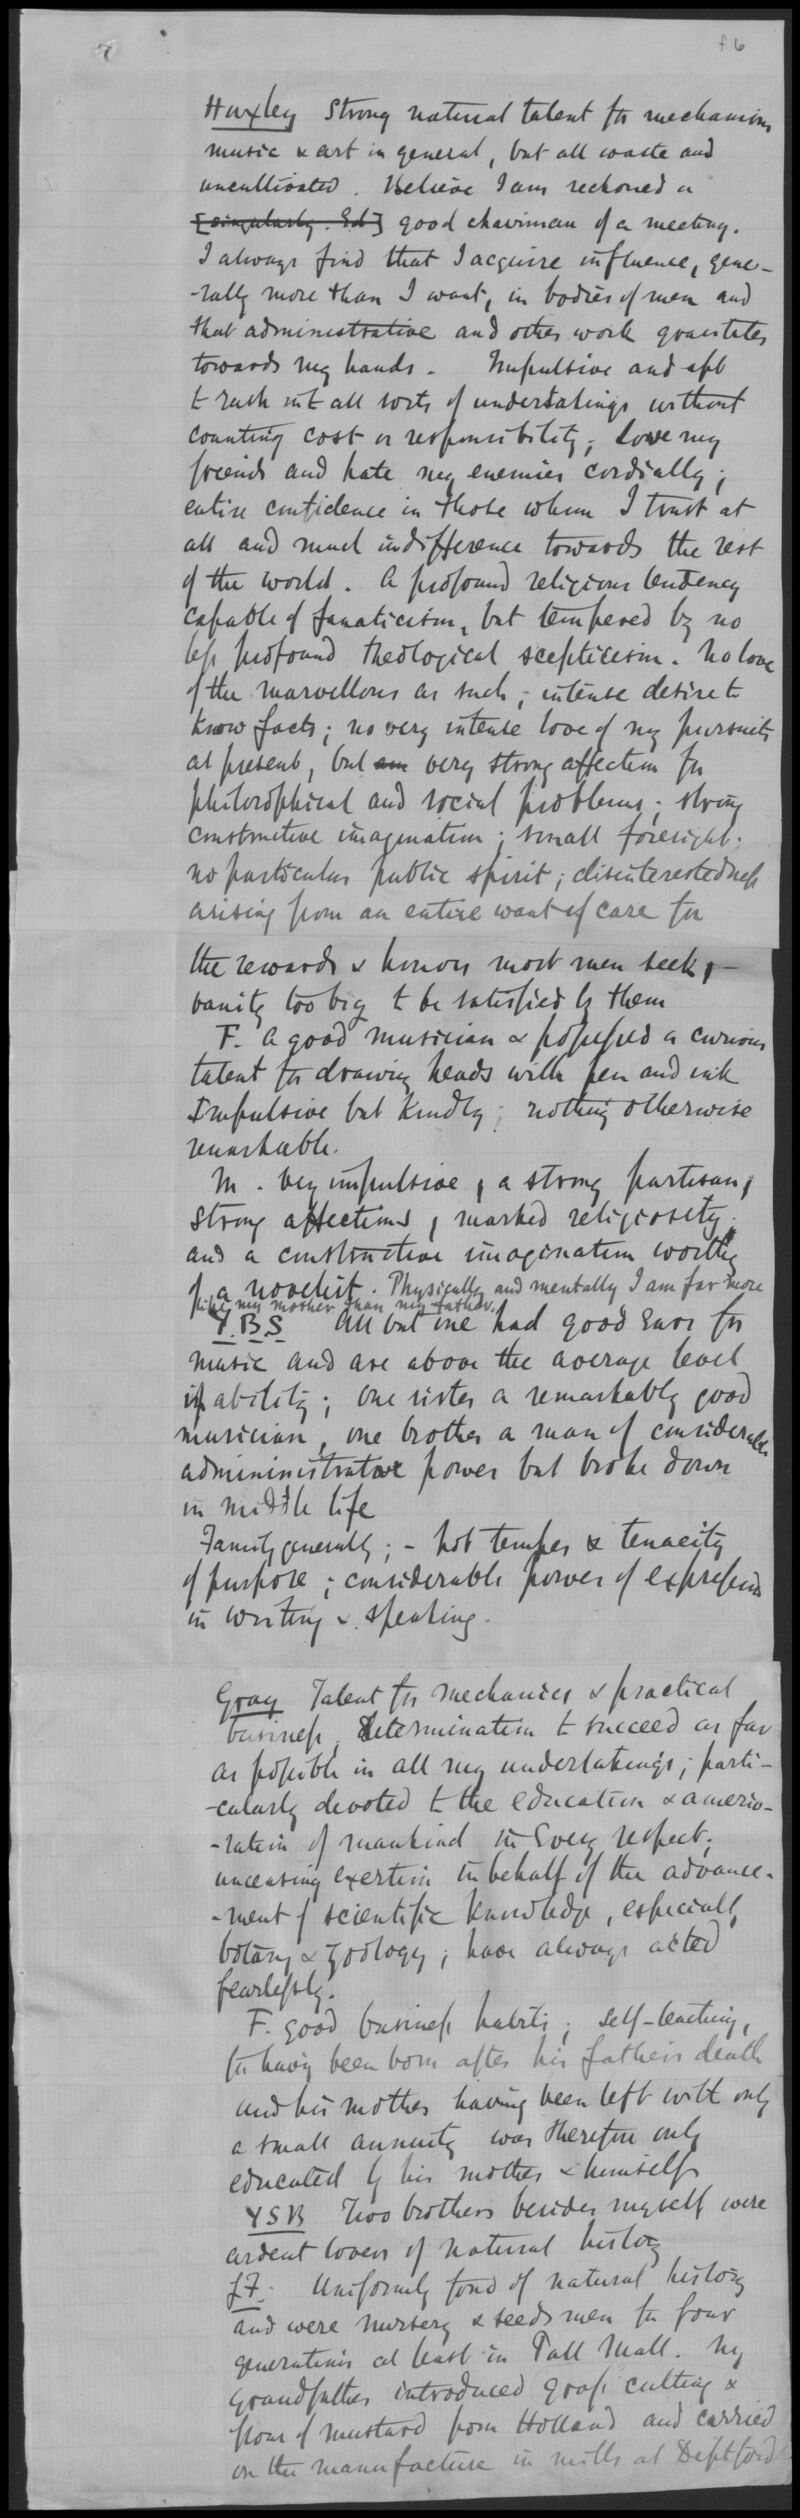 f 6
Huxley Strong natural talent for mechanism
music & art in general, but all waste and
uncultivated. Believe I am reckoned a
[singularly. Ed] good chairman of a meeting.
I always find that I acquire influence, gene-
-rally more than I want, in bodies of men and
that administrative and other work gravitates
towards my hands. Impulsive and apt
to rush into all sorts of undertakings without
counting cost or responsibility; love my
friends and hate my enemies cordially;
entire confidence in those whom I trust at
all and much indifference towards the rest
of the world. A profound religious tendency
capable of fanaticism, but tempered by no
less profound theological scepticism. No love
of the marvellous as such; intense desire to
know facts; no very intense love of my pursuits
at present, but am very strong affection for
philosophical and social problems; strong
constructive imagination; small foresight;
no particular public spirit; disinterestedness
arising from an entire want of care for
the rewards & honors most men seek, -
vanity too big to be satisfied by them
F. A good musician & possessed a curious
talent for drawing heads with pen and ink
Impulsive but kindly; nothing otherwise
remarkable.
M. very impulsive, a strong partisan,
strong affections, marked religiosity;
and a constructive imagination worthy
of a novelist. Physically and mentally I am far more
like my mother than my father.
Y.B.S All but one had good ears for
music and are above the average level
in ability; one sister a remarkably good
musician, one brother a man of considerable
admininistrative power but broke down
in middle life
Family generally; - hot temper & tenacity
of purpose; considerable power of expression
in writing & speaking.
Gray Talent for mechanics & practical
business, determination to succeed as far
as possible in all my undertakings; parti-
-cularly devoted to the education & amerio-
-ration of mankind in every respect;
unceasing exertion in behalf of the advance-
-ment of scientific knowledge, especially
botany & zoology; have always acted
fearlessly.
F. good business habits; self-teaching,
for having been born after his father's death
and his mother having been left with only
a small annuity was therefore only
educated by his mother & himself
YSB Two brothers besides myself were
ardent lovers of natural history
£F. Uniformly fond of natural history
and were nursery & seedsmen for four
generations at least in Pall Mall. My
grandfather introduced grass cutting &
flour of mustard from Holland and carried
on the manufacture in mills at Deptford